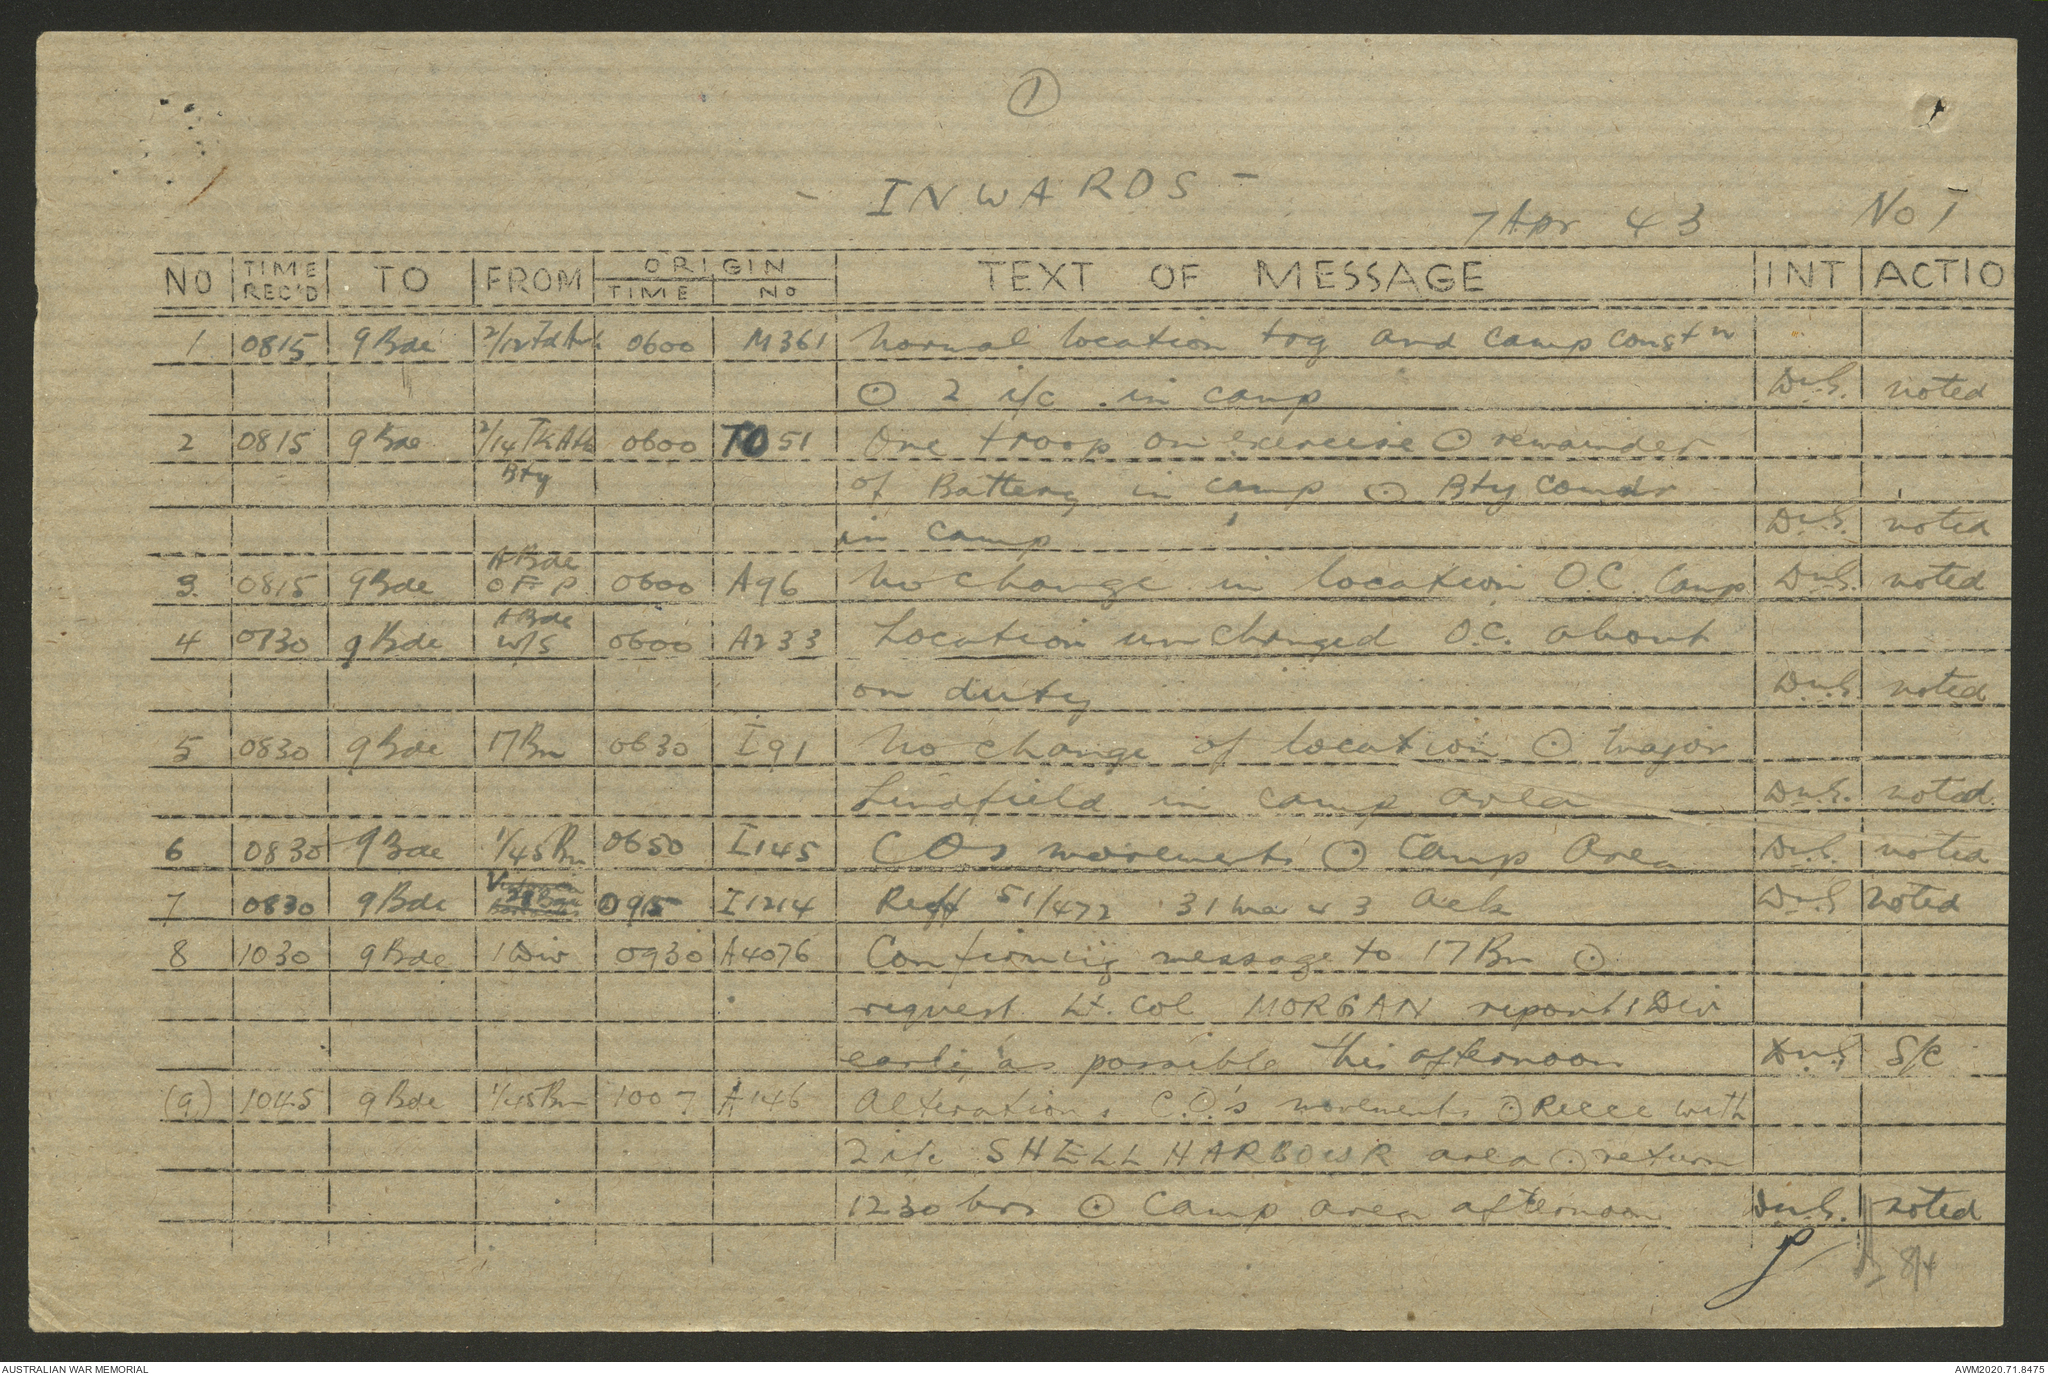 1
- INWARDS -
7 Apr 43 No 1
NO TIME REC'D TO FROM ORIGIN TIME NO TEXT OF MESSAGE INT ACTIO
1 0815 9 Bde 2/12 Fd 0600 M361 Normal location trg and camp constn
⊙ 2 i/c in camp noted
2 0815 9 Bde 2/14 0600 TO 51 One troop on exercise ⊙ remainder
Bty of Battery in camp ⊙ Bty Comdr
in camp noted
3. 0815 9 Bde A Bde OFP 0600 A96 No change in location O.C. Camp noted
4 0730 9 Bde A Bde w/s 0600 A233 Location unchanged O.C. about
on duty noted
5 0830 9 Bde 17 Bn 0630 I91 No change of location ⊙ Major
Lindfield in camp area noted.
6 0830 9 Bde 1/45 Bn 0650 I145 COs movements ⊙ Camp Area noted
7 0830 9 Bde 0915 I1214 51/472 31 43 Ack noted
8 1030 9 Bde 1 Div 0930 A4076 Confirming message to 17 Bn ⊙
request Lt. Col MORGAN report 1 Div
early as possible this afternoon S/C
(9) 1045 9 Bde 1/45 Bn 1007 A146 Alterations C.O.'s movements ⊙ Recce with
2 i/c SHELL HARBOUR area ⊙ return
1230 hrs ⊙ Camp area afternoon noted
8/4
AUSTRALIAN WAR MEMORIAL AWM2020.71.8475